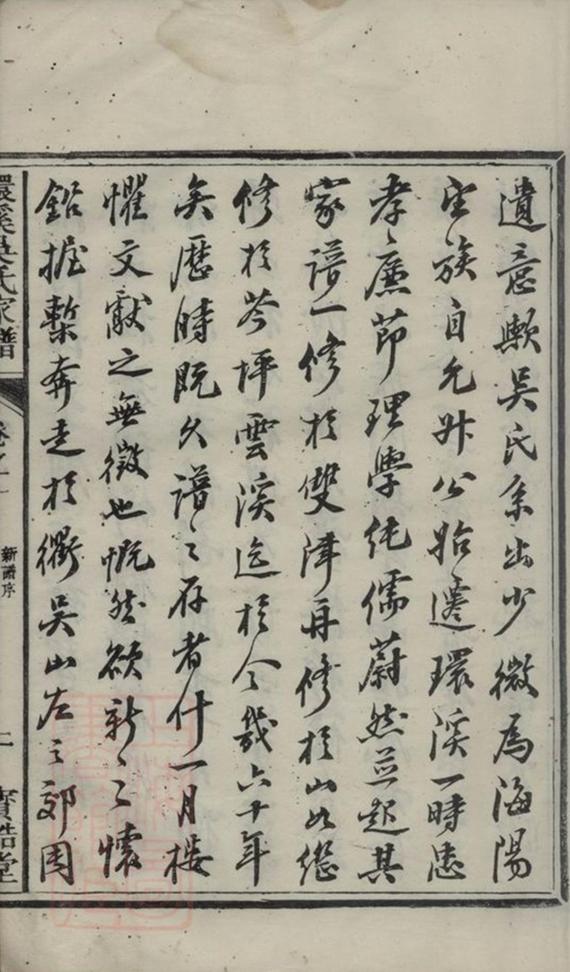 遺意歟吳氏系出少微為海陽
望族自允升公始遷環溪一時忠
孝廉節理學純儒蔚然並起其
家譜一修於雙津再修於山如繼
修於岑坪雲溪迄於今幾六十年
矣歷時既久譜之存者什一月樓
懼文獻之無徵也慨然欲新之懷
鉛握槧奔走於衢吳山左之郊周
環溪吳氏家譜 卷之一 新譜序 寶誥堂